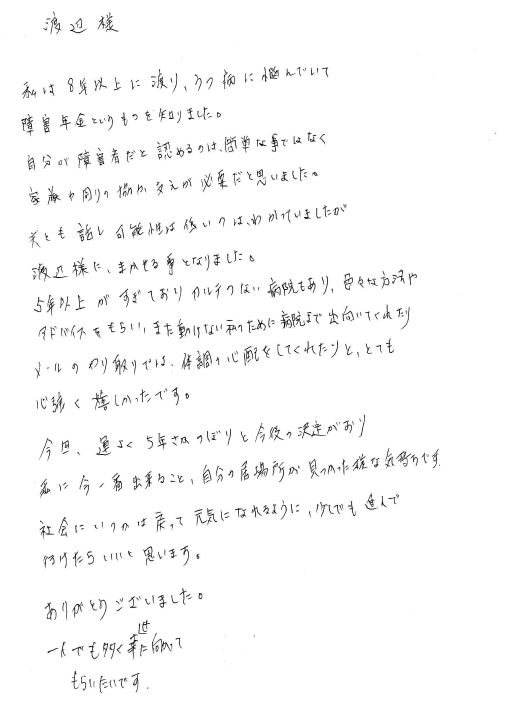 渡辺様
私は8年以上に渡り、うつ病に悩んでいて
障害年金というものを知りました。
自分が障害者だと認めるのは、簡単な事ではなく
家族や周りの協力、支えが必要だと思いました。
夫とも話し可能性は低いのは、わかっていましたが
渡辺様に、まかせる事となりました。
5年以上がすぎておりカルテのない病院もあり、色々な方法や
アドバイスをもらい、また動けない私のために病院まで出向いてくれたり
メールのやり取りでは、体調の心配をしてくれたりと、とても
心強く嬉しかったです。
今回、運よく5年さかのぼりと今後の決定がおり
私に今一番出来ること、自分の居場所が見つかった様な気持ちです.
社会にいつかは戻って元気になれるように、少しでも進んで
行けたらいいと思います。
ありがとうございました。
一人でも多く に向かって
もらいたいです.